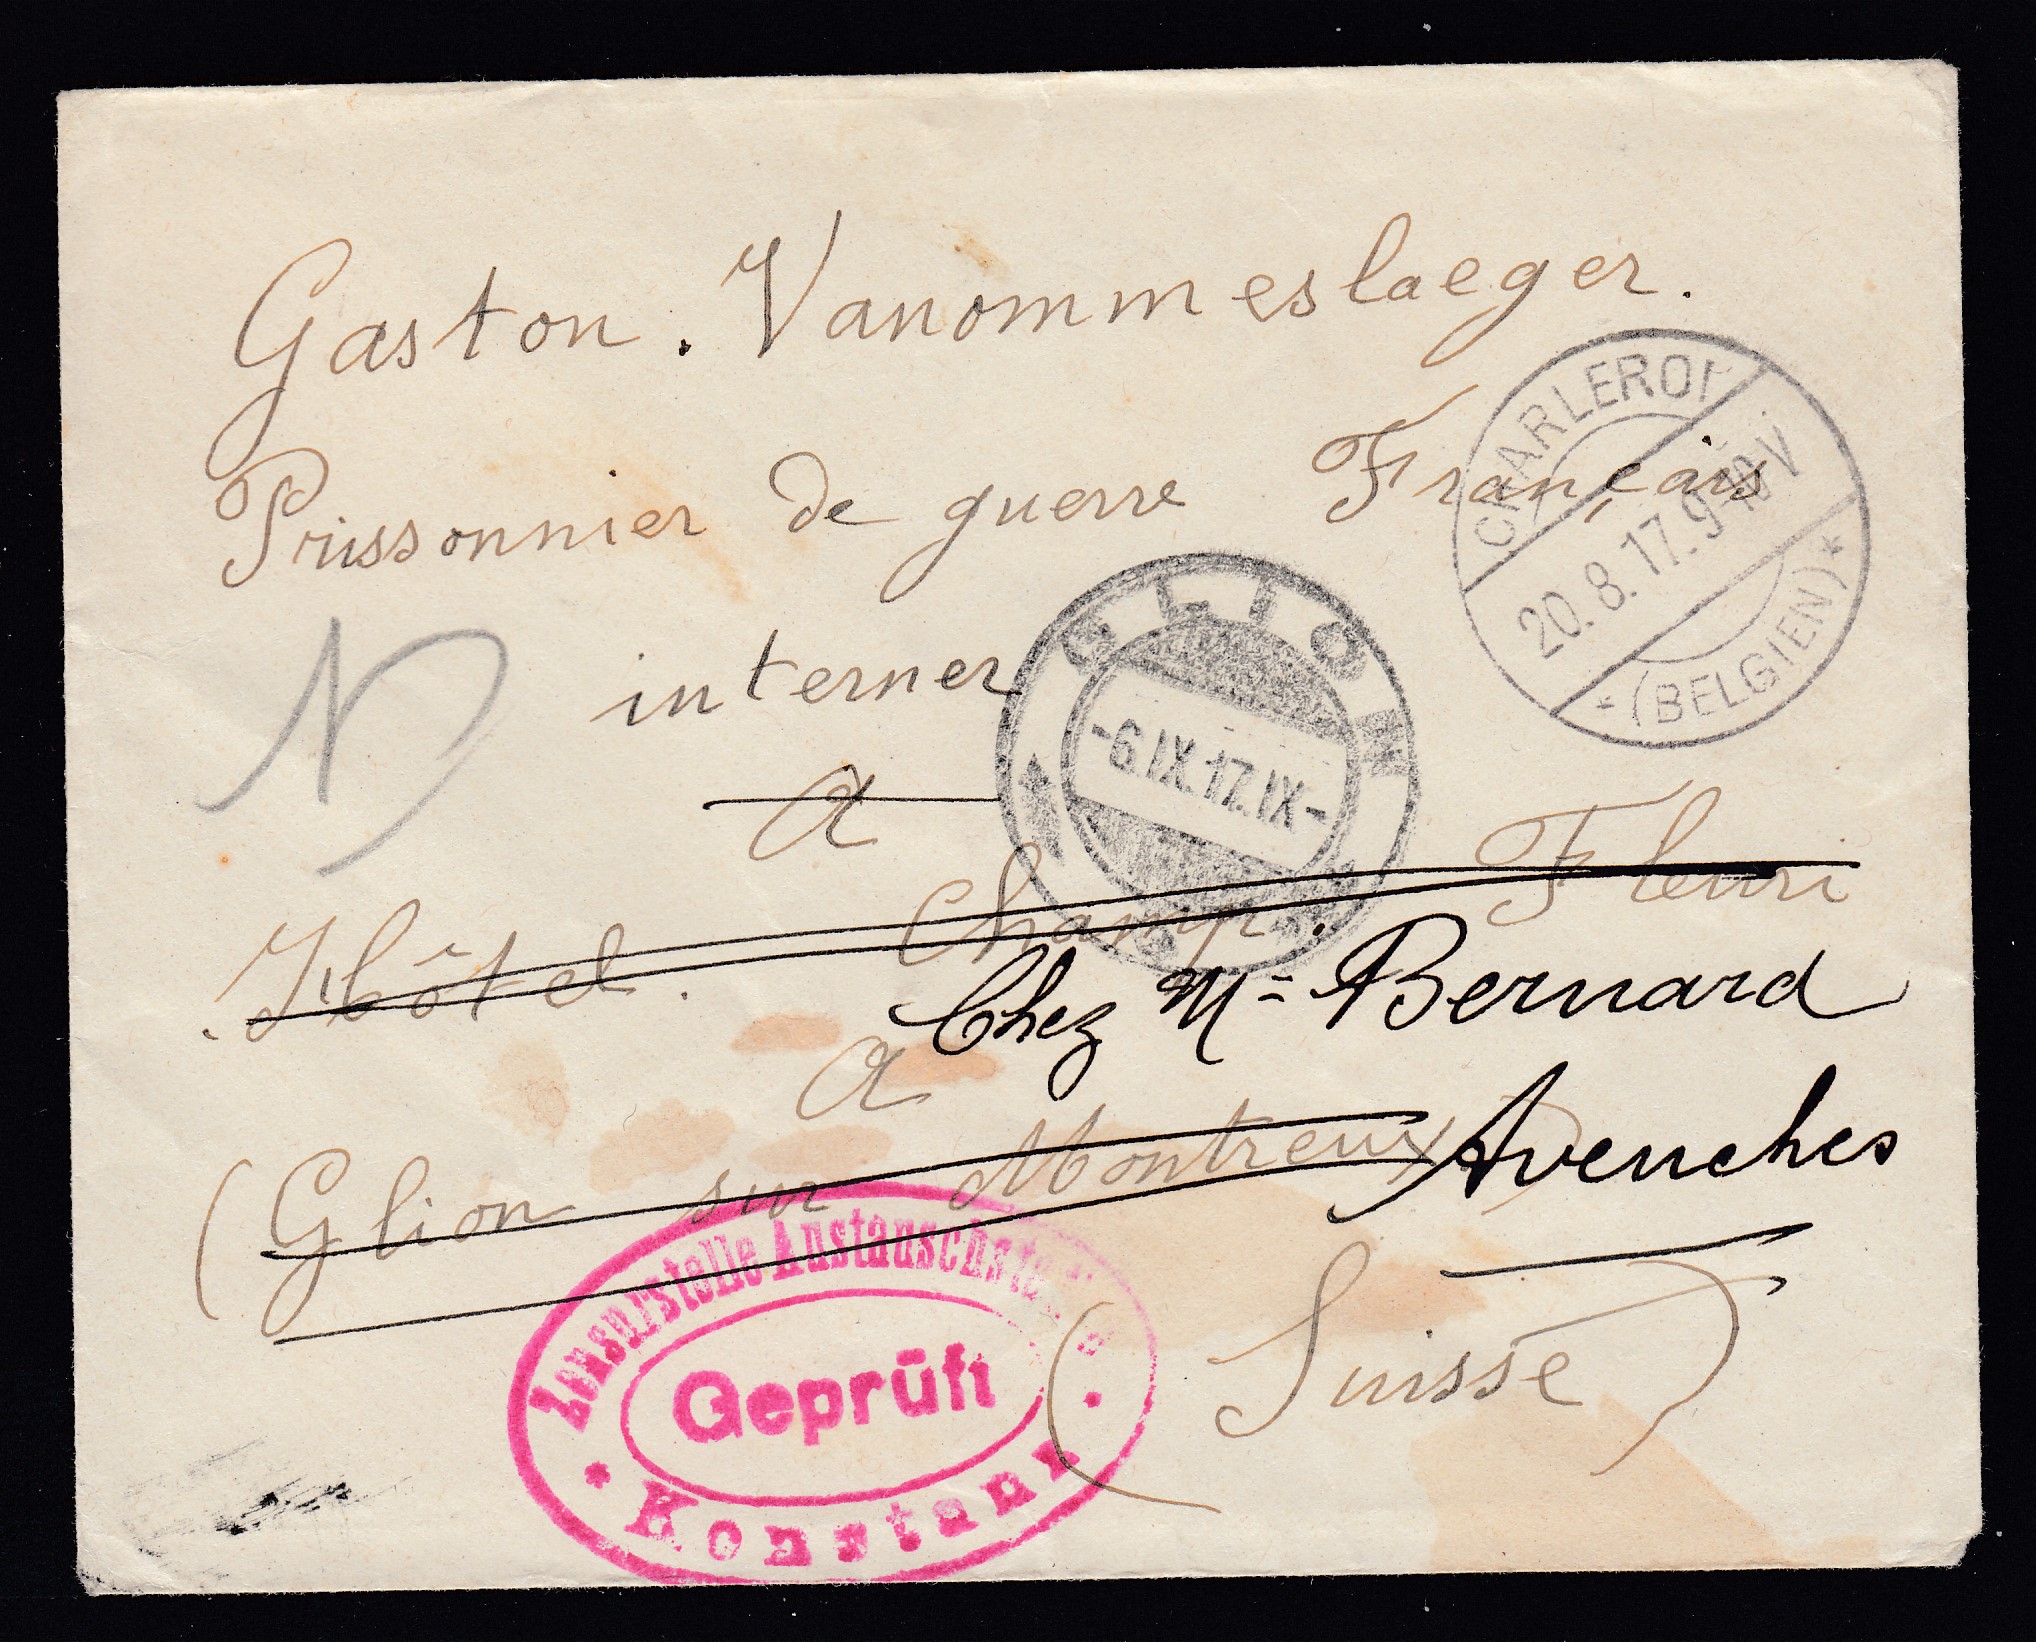 Gaston. Vanommeslaeger.
CHARLEROI
20.8.17.9-10V
*(BELGIEN)*
Prissonnier de guerre Français
GLION
-6.IX.17.IX-
interner
a
Hôtel. Champ. Fleuri
Chez Mr Bernard
a
(Glion sur Montreux)
Avenches
(Suisse)
Zensurstelle
Geprüft
* Konstanz